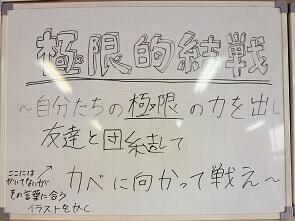 極限的結戦
～自分たちの極限の力を出し
友達と団結して
カベに向かって戦え～
ここには
かいてないが
その言葉に合う
イラストをかく